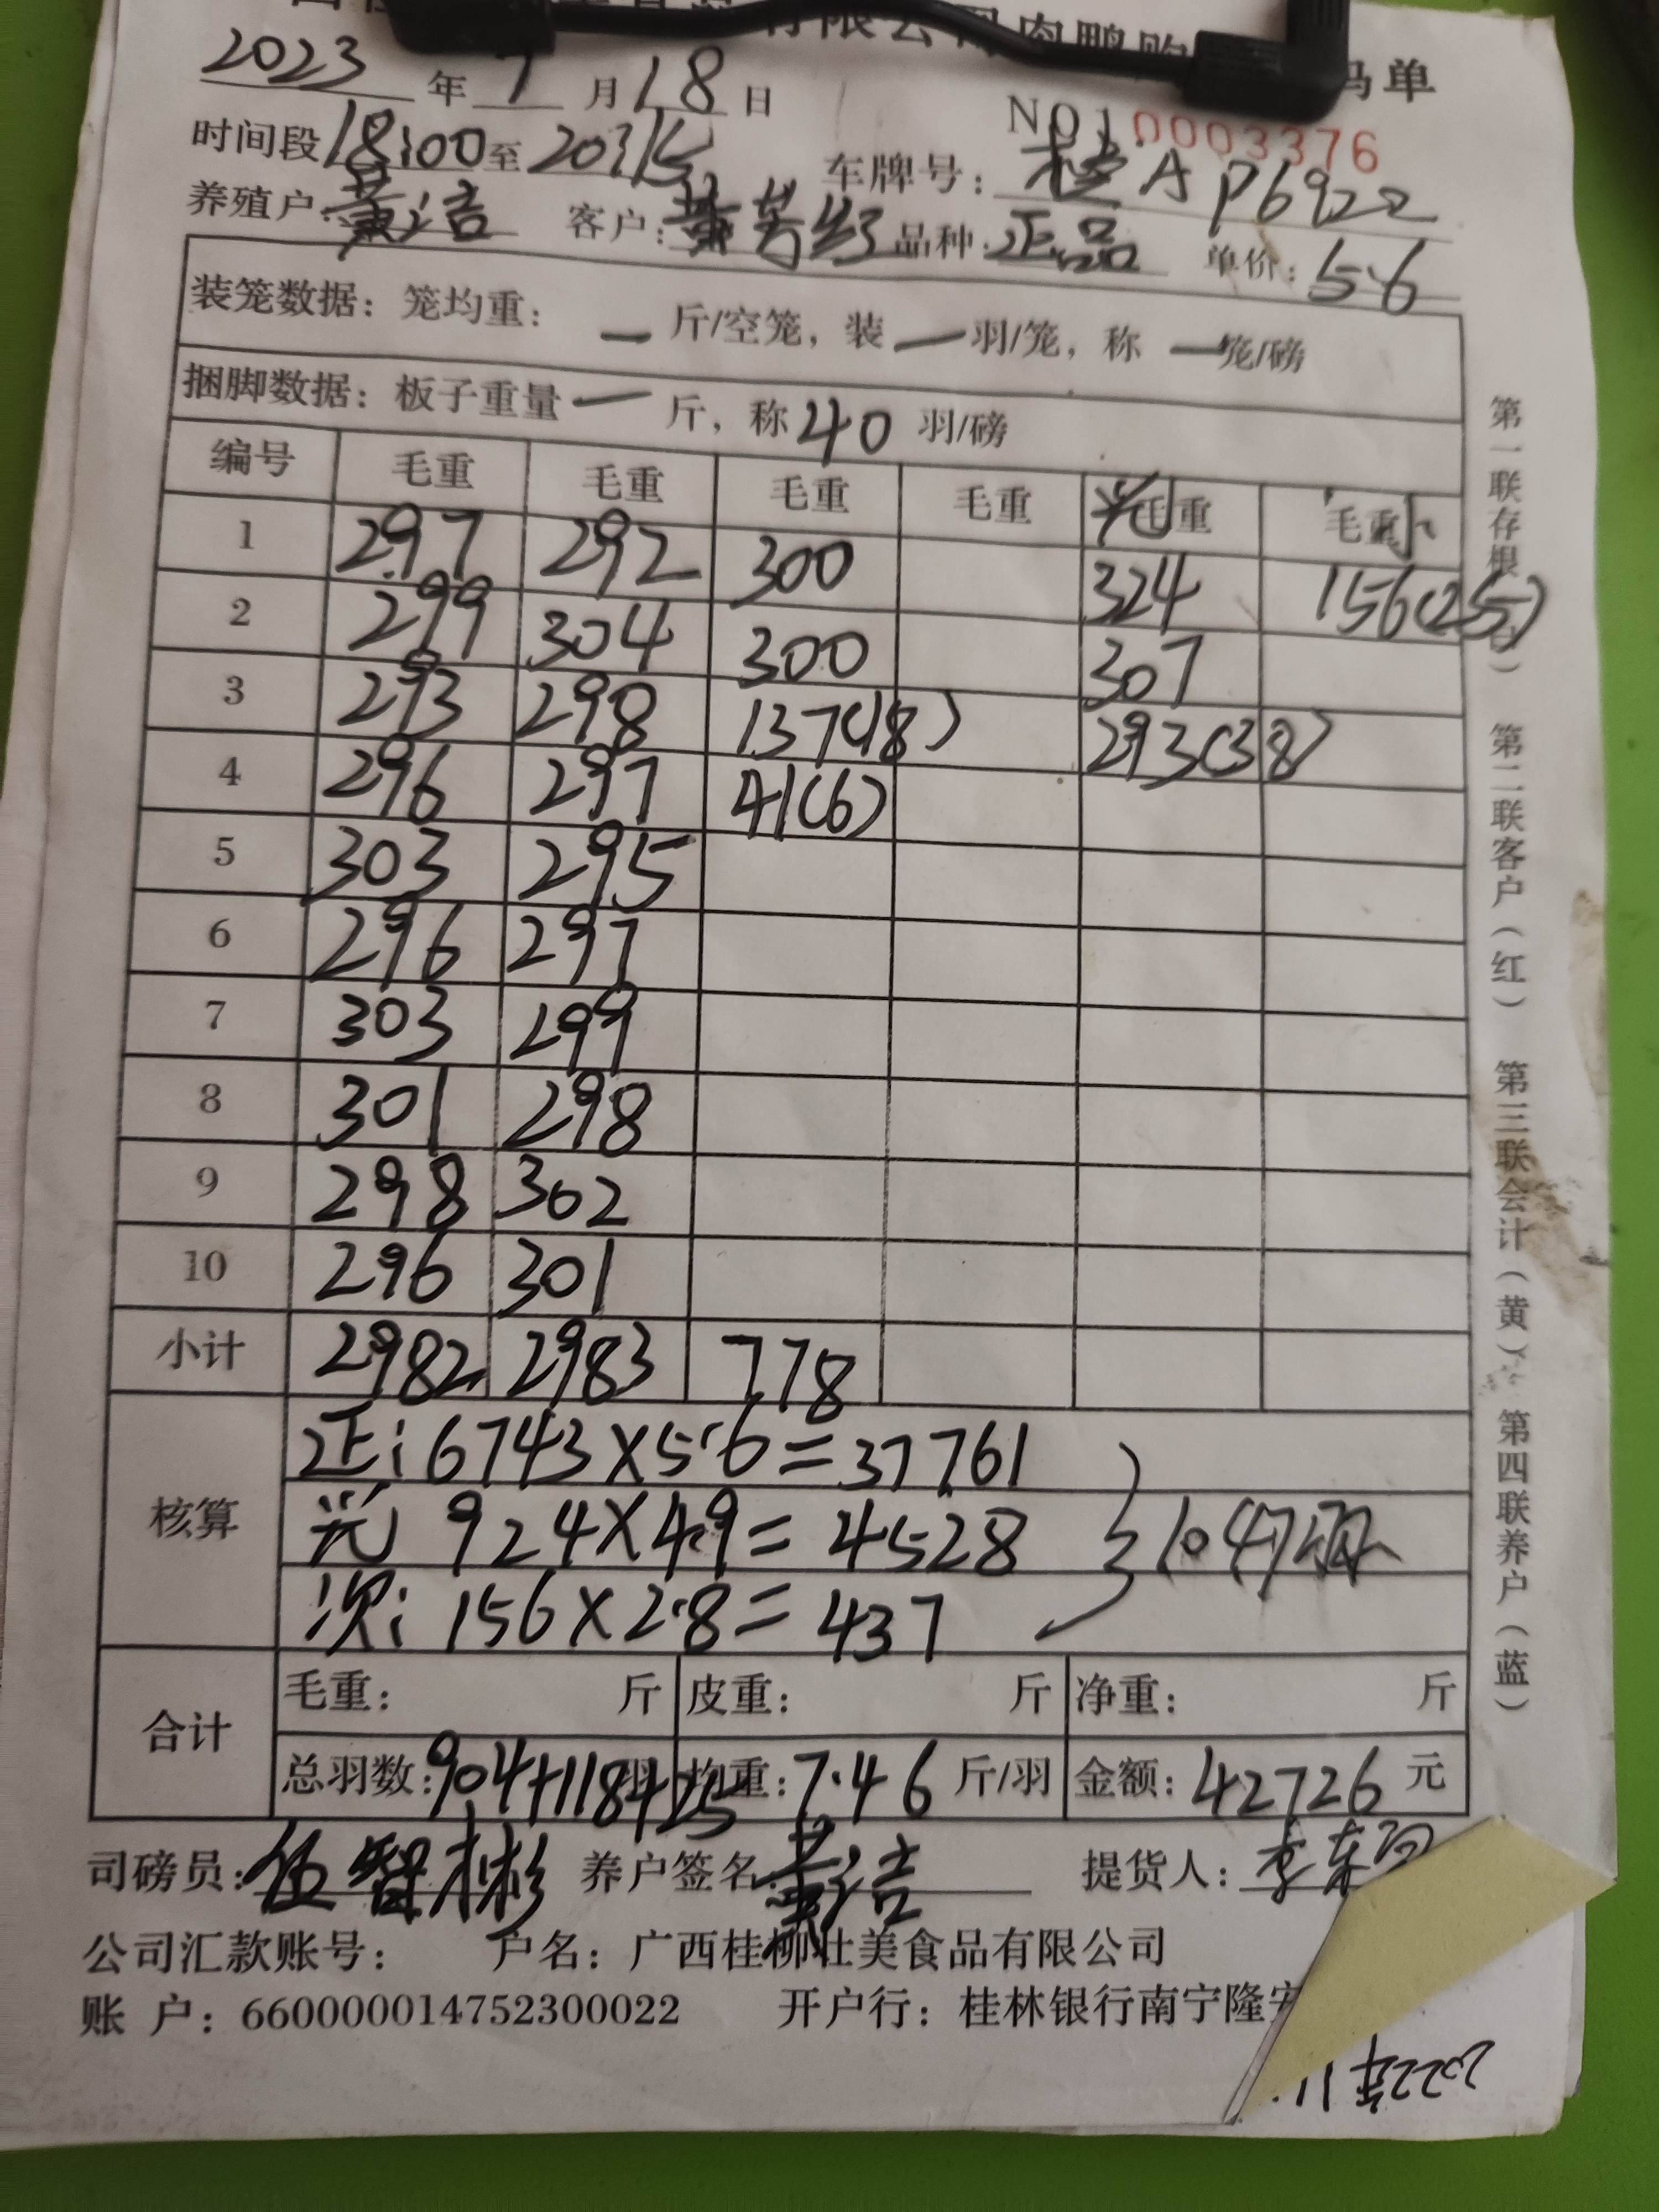 有限公司肉鸭购 码单
2023年7月18日
NO10003376
时间段18:00至20:15 车牌号:桂AP6922
养殖户:黄洁 客户: 品种:正品 单价:5.6
装笼数据:笼均重:一斤/空笼,装一羽/笼,称一笼/磅
捆脚数据:板子重量一斤,称40羽/磅
编号 毛重 毛重 毛重 毛重 光毛重 毛重小
1 297 292 300 324 156(25)
2 299 304 300 307
3 293 298 137(18) 293(38)
4 296 297 41(6)
5 303 295
6 296 297
7 303 299
8 301 298
9 298 302
10 296 301
小计 2982 2983 778
核算 正:6743×5.6=37761
光 924×4.9=4528 1047羽
次:156×2.8=437
合计 毛重: 斤 皮重: 斤 净重: 斤
总羽数:904+118+25羽 均重:7.46斤/羽 金额:42726元
司磅员:伍智彬 养户签名:黄洁 提货人:李
公司汇款账号: 户名:广西桂柳壮美食品有限公司
账 户:660000014752300022 开户行:桂林银行南宁隆安
2022年11
第一联存根 第二联客户(红) 第三联会计(黄) 第四联养户(蓝)